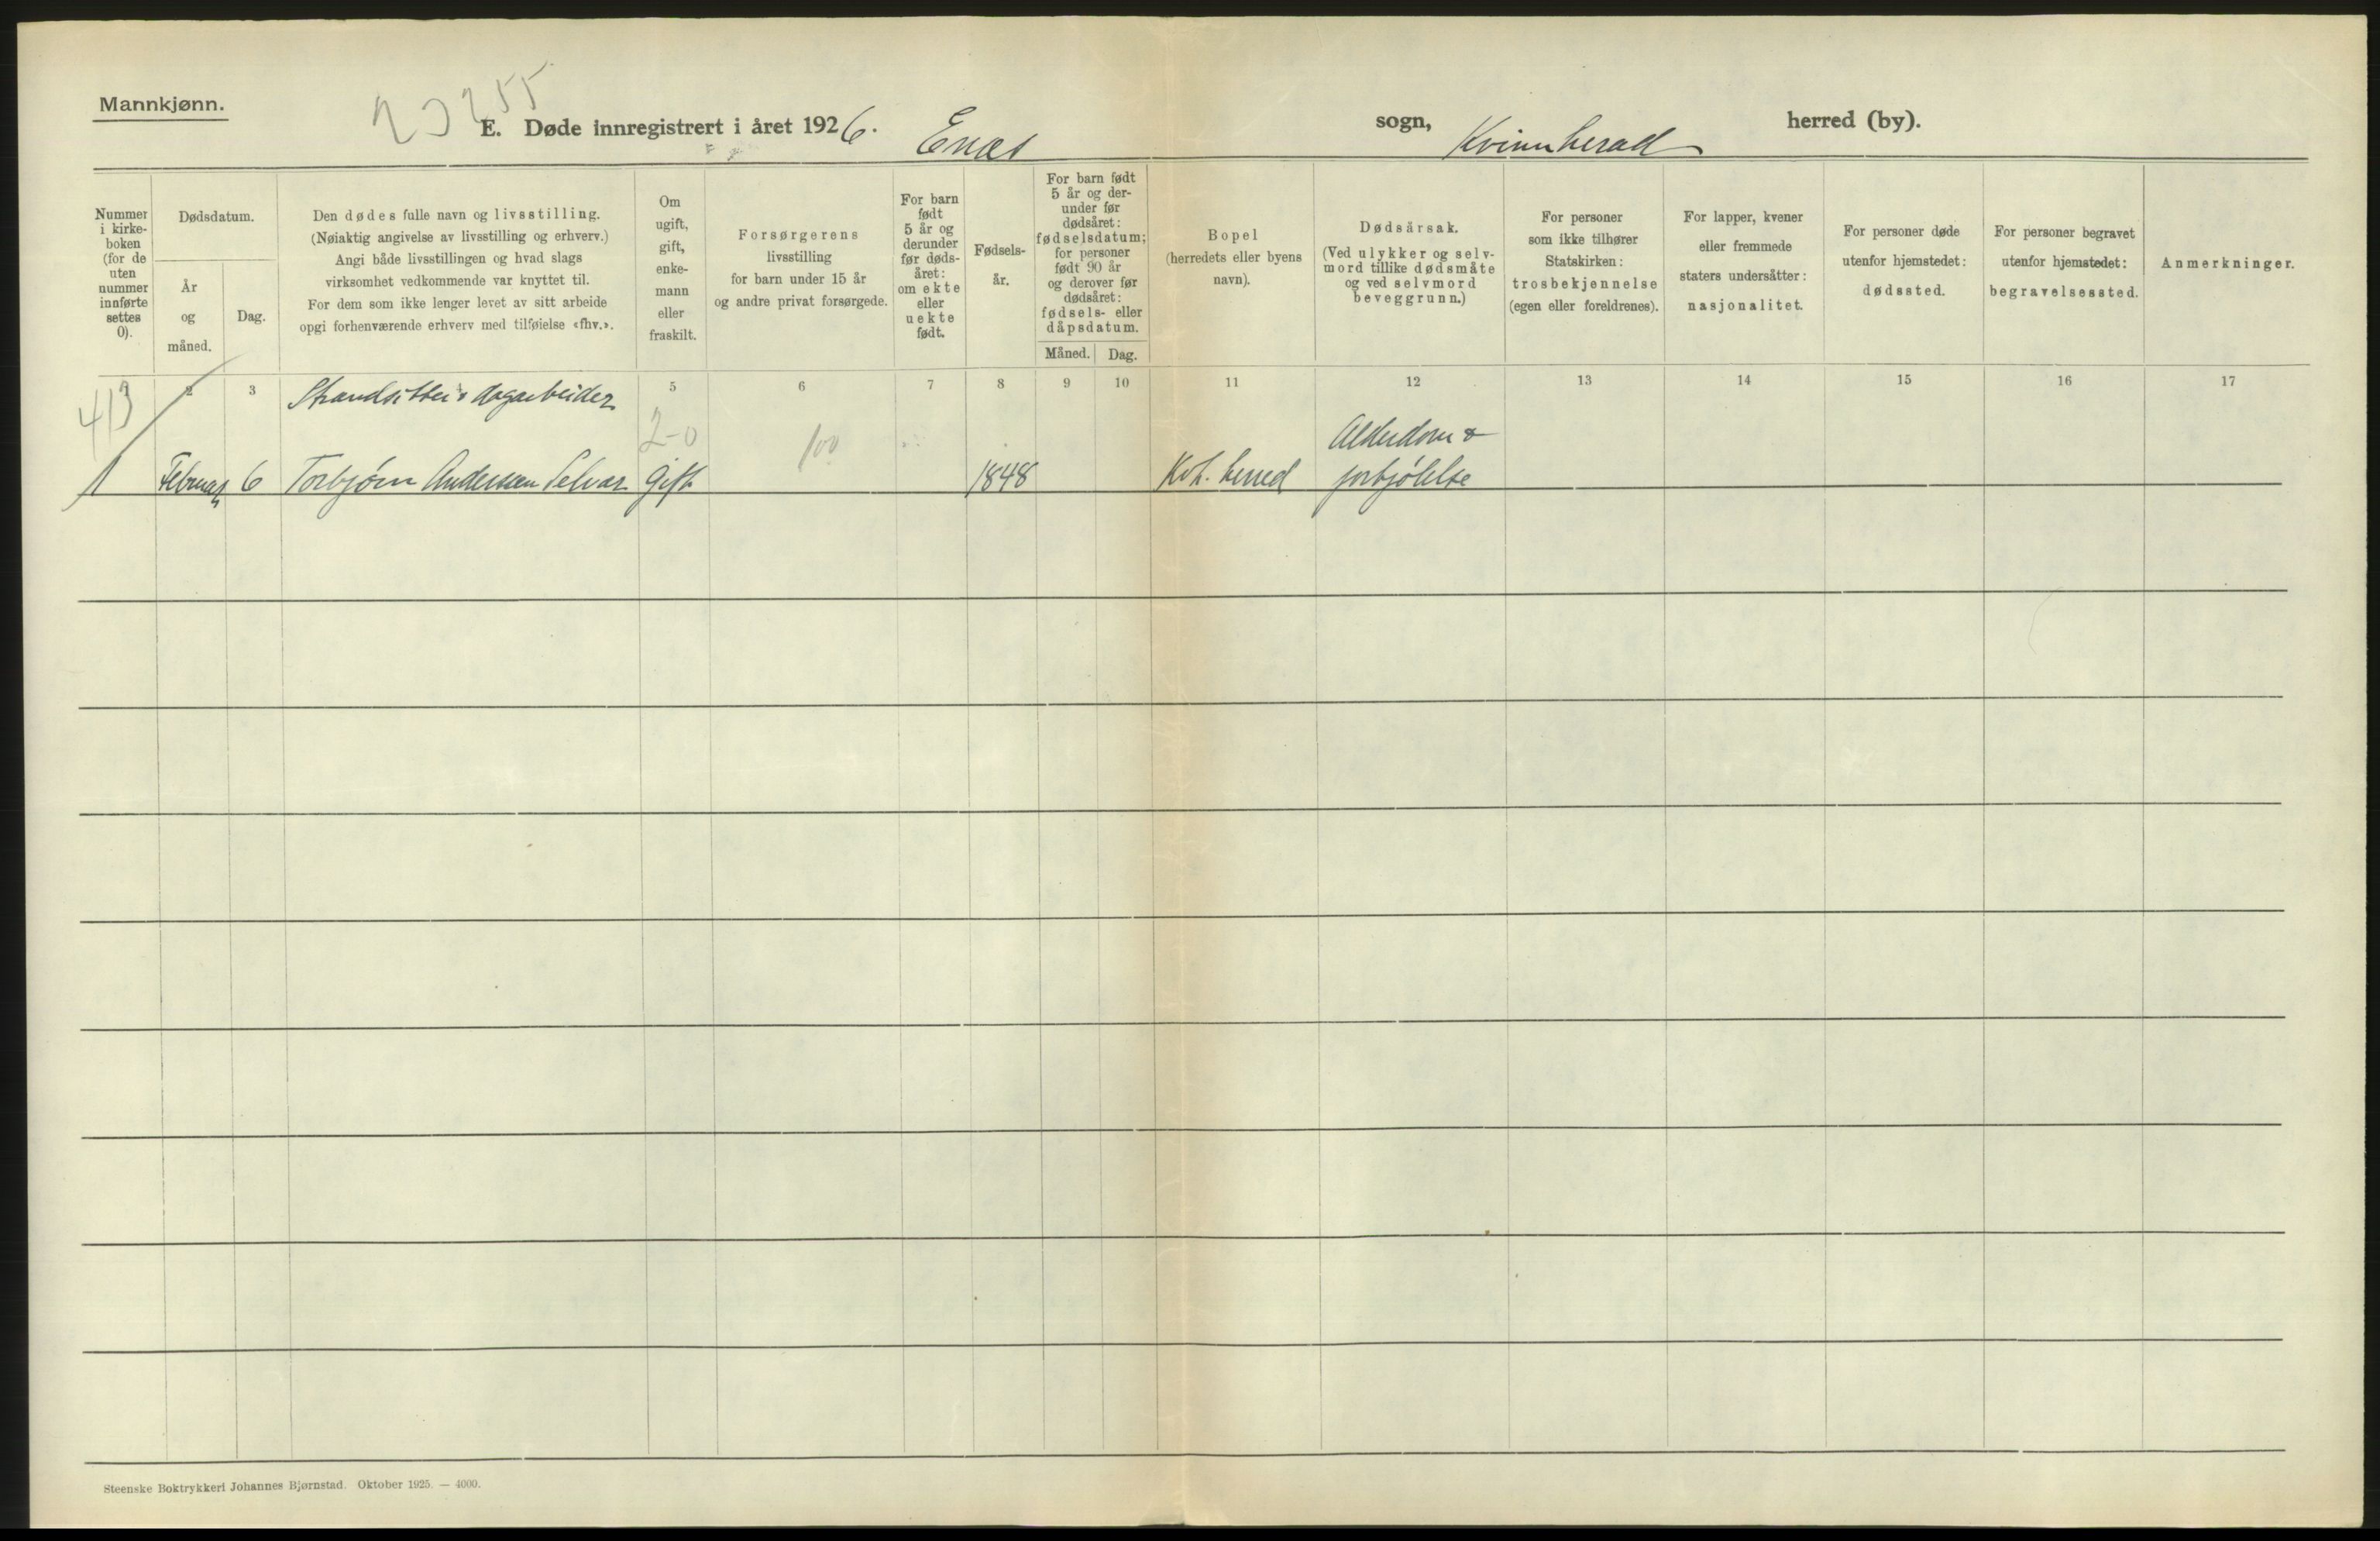 Mannkjønn.
23255
E. Døde innregistrert i året 1926. Enæs sogn, Kvinnherad herred (by).
Nummer
i kirke-
boken
(for de
uten
nummer
innførte
settes
0).
Dødsdatum.
År
og
måned.
Dag.
Den dødes fulle navn og livsstilling.
(Nøiaktig angivelse av livsstilling og erhverv.)
Angi både livsstillingen og hvad slags
virksomhet vedkommende var knyttet til.
For dem som ikke lenger levet av sitt arbeide
opgi forhenværende erhverv med tilføielse «fhv.».
Om
ugift,
gift,
enke-
mann
eller
fraskilt.
Forsørgerens
livsstilling
for barn under 15 år
og andre privat forsørgede.
For barn
født
5 år og
derunder
før døds-
året:
om ekte
eller
uekte
født.
Fødsels-
år.
For barn født
5 år og der-
under før
dødsåret:
fødselsdatum;
for personer
født 90 år
og derover før
dødsåret:
fødsels- eller
dåpsdatum.
Måned. Dag.
Bopel
(herredets eller byens
navn).
Dødsårsak.
(Ved ulykker og selv-
mord tillike dødsmåte
og ved selvmord
beveggrunn.)
For personer
som ikke tilhører
Statskirken:
trosbekjennelse
(egen eller foreldrenes).
For lapper, kvener
eller fremmede
staters undersåtter:
nasjonalitet.
For personer døde
utenfor hjemstedet:
dødssted.
For personer begravet
utenfor hjemstedet:
begravelsessted.
Anmerkninger.
1 2 3 5 6 7 8 9 10 11 12 13 14 15 16 17
413
Strandsitter & dagarbeider
2-0
100
Alderdom &
1 Februar 6 Torbjørn Andersen Selvar Gift 1848 Kvh. herred forkjølelse
Steenske Boktrykkeri Johannes Bjørnstad. Oktober 1925. — 4000.